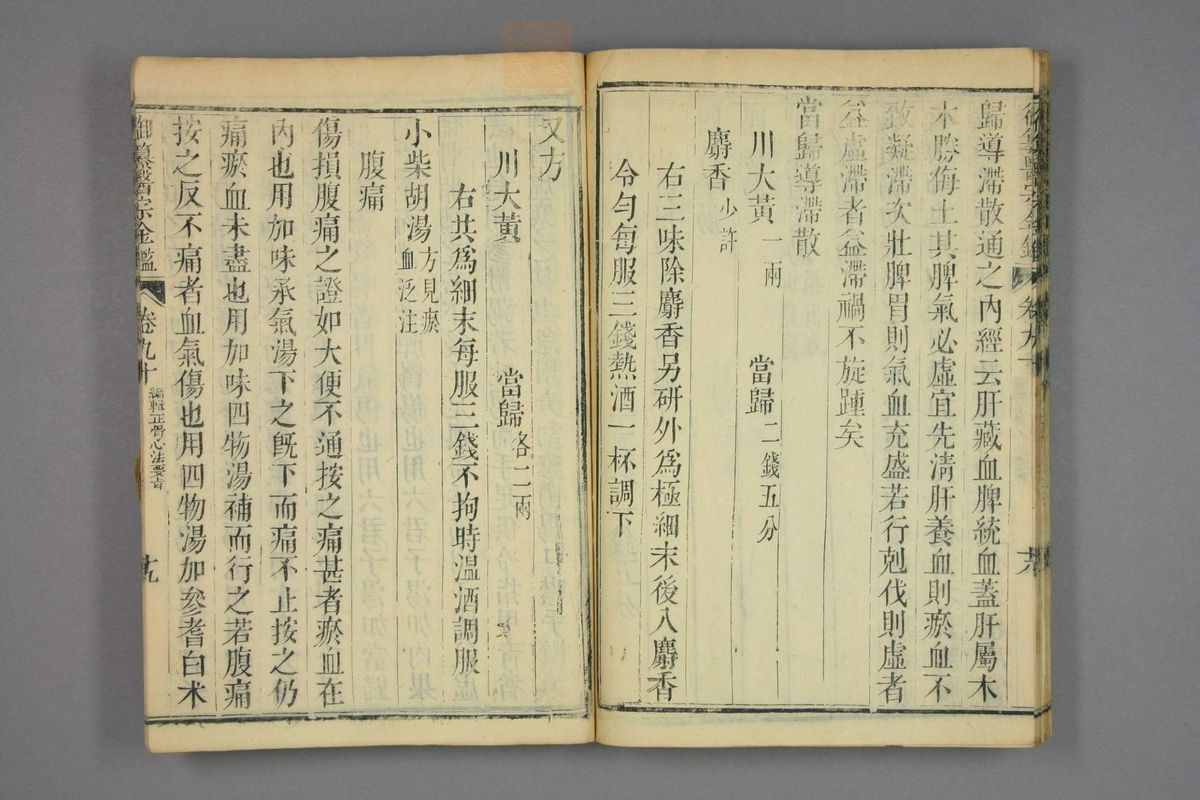 御纂醫宗金鑑 卷九十
歸導滯散通之內經云肝藏血脾統血蓋肝屬木
木勝侮土其脾氣必虛宜先清肝養血則瘀血不
致凝滯次壯脾胃則氣血充盛若行剋伐則虛者
益虛滯者益滯禍不旋踵矣
當歸導滯散
川大黃一兩 當歸二錢五分
麝香少許
右三味除麝香另研外為極細末後入麝香
令勻每服三錢熱酒一杯調下
又方
川大黃 當歸各二兩
右共為細末每服三錢不拘時溫酒調服
小柴胡湯方見瘀血泛注
腹痛
傷損腹痛之證如大便不通按之痛甚者瘀血在
內也用加味承氣湯下之旣下而痛不止按之仍
痛瘀血未盡也用加味四物湯補而行之若腹痛
按之反不痛者血氣傷也用四物湯加參耆白术
御纂醫宗金鑑 卷九十 編輯正骨心法要旨 十九